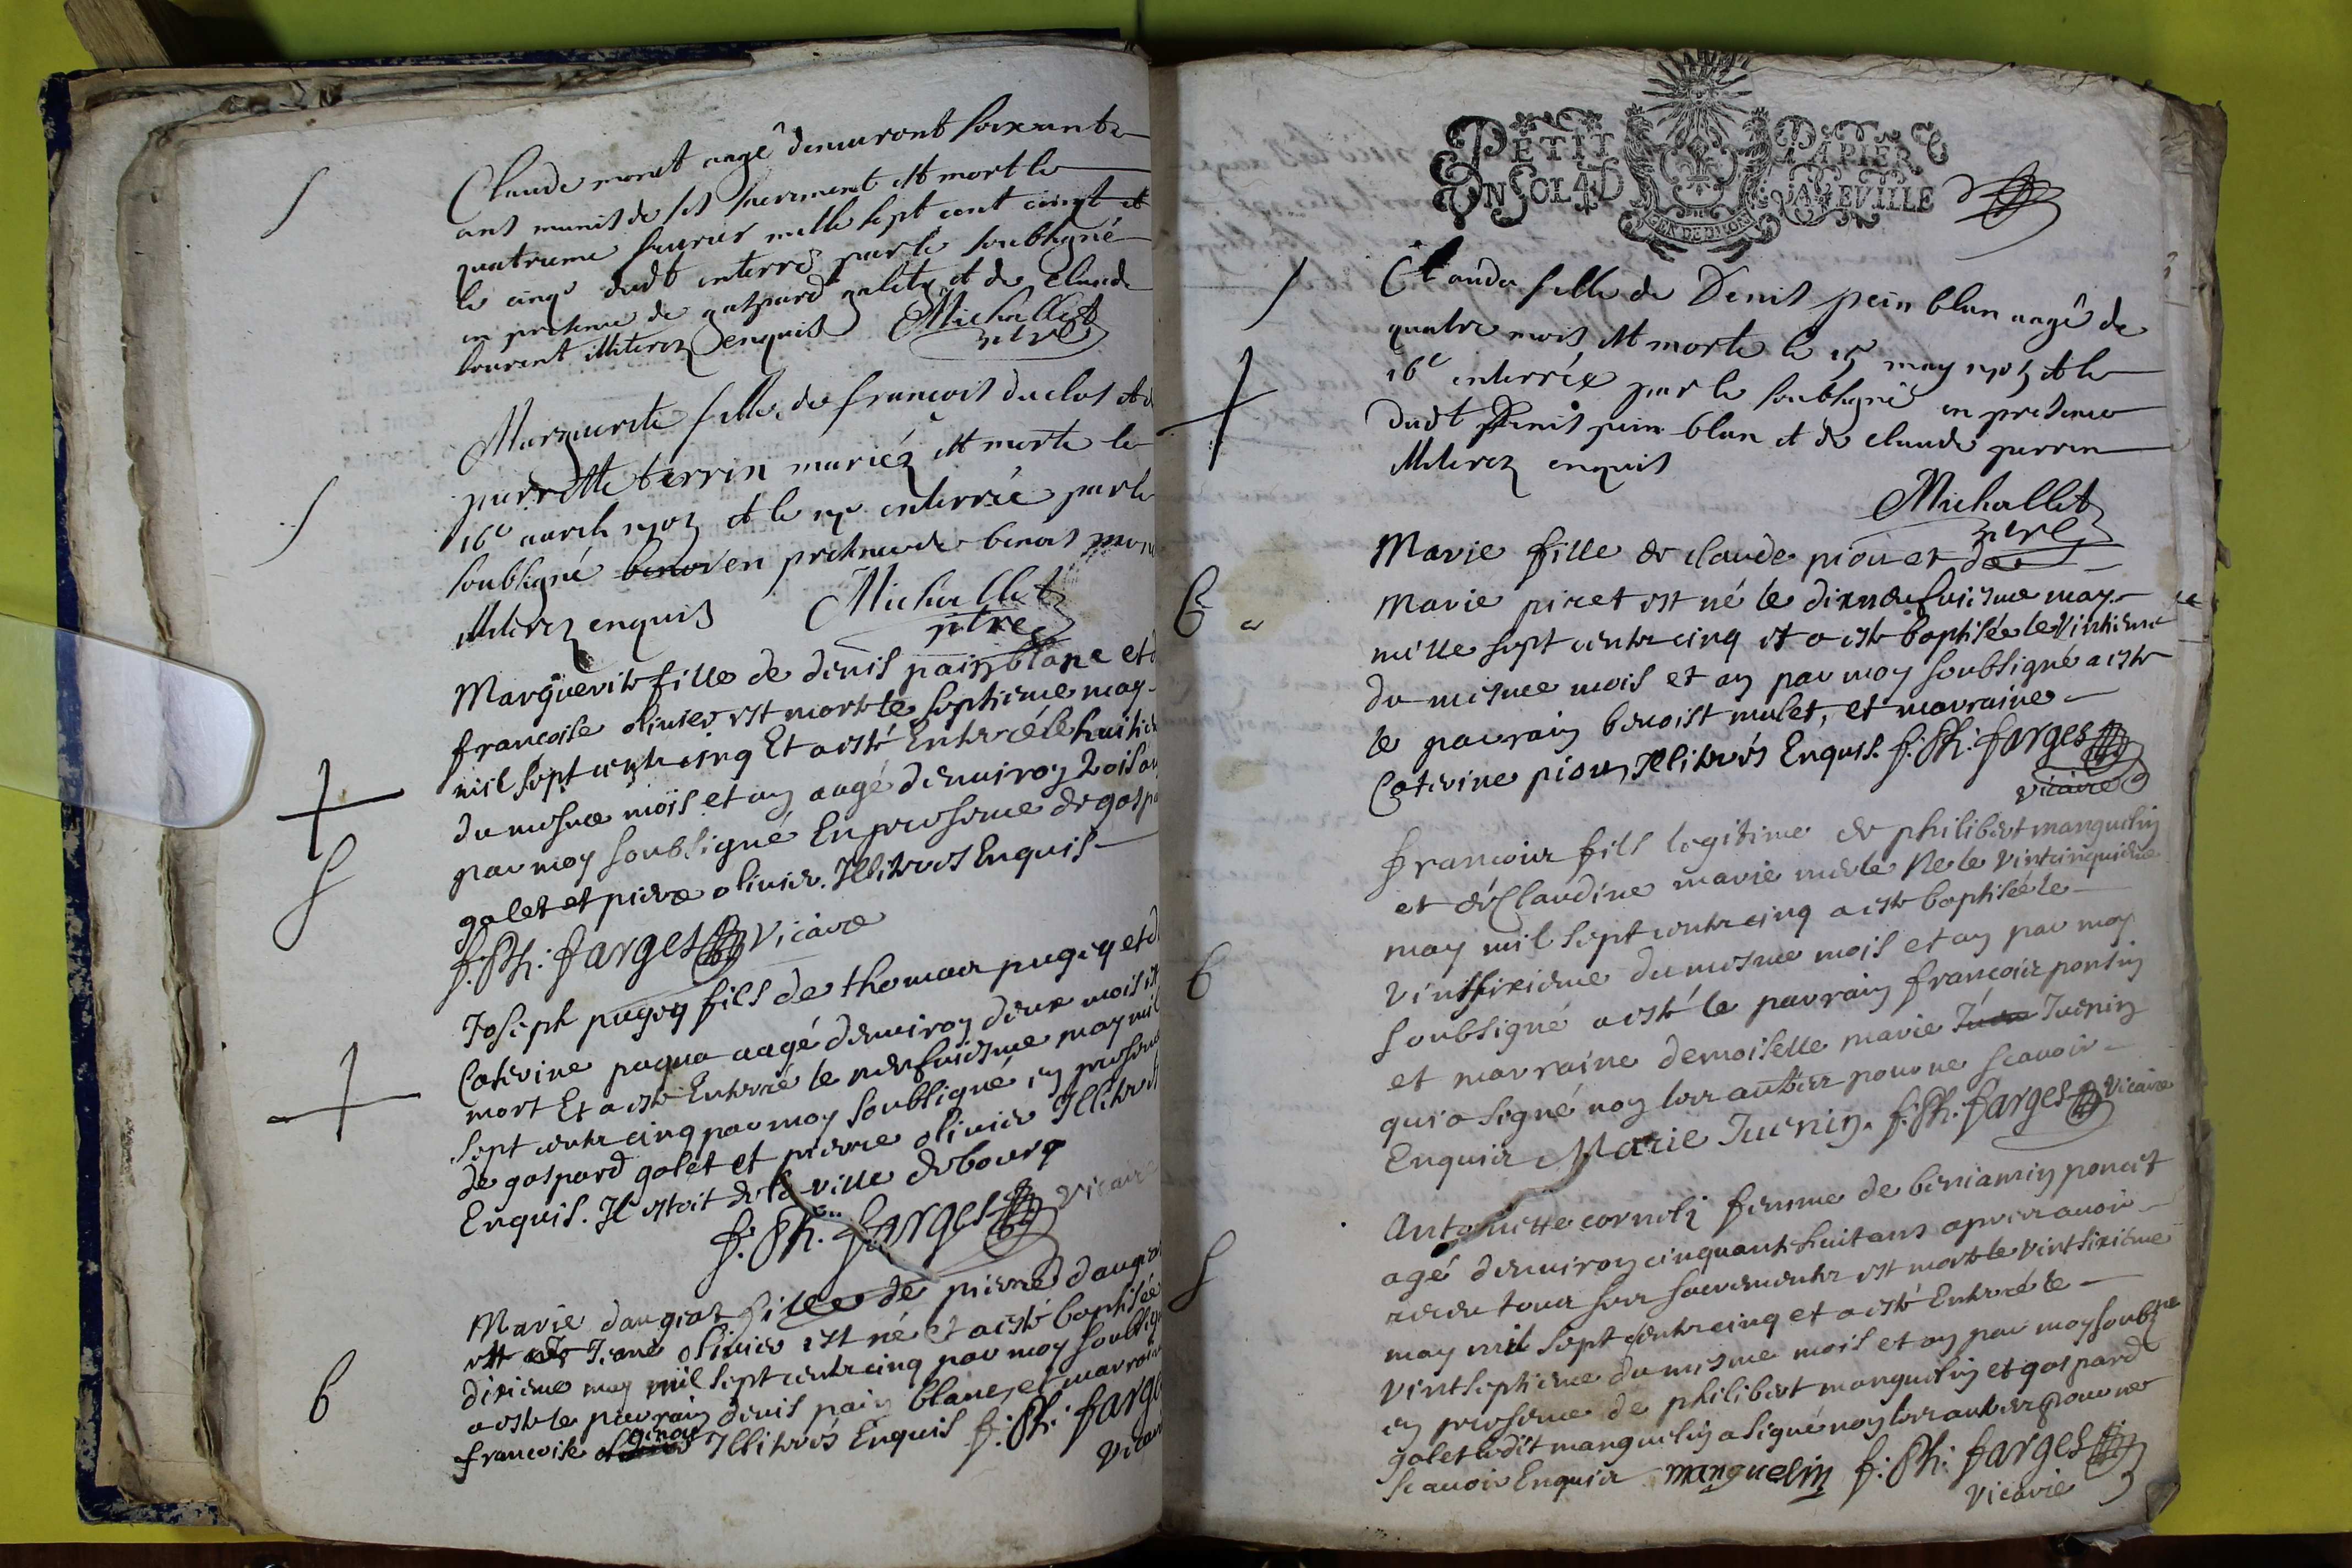 Claude monet aagé denuiront soixante
ans munis de ses sacrement est mort le
quatrieme feurier mille sept cent cinqt et
le cinqe dudt interré par le soubsigné
en presence de gaspard galety et de Claude
laurent illiterez enquis Michallet
ptre
Marguerite fille de francois duclos et d
perrette terrin mariéz est morte le
16e auril 1705 et le 17e enterrée par le
soubsigné benoi en presence de benois mon
illiterez enquis Michallet
ptre
Marguerite fille de denis pain blanc et d
francoise oliuier est morte le septieme may
mil sept centz cinq Et a esté Enterrée le huitie
du mesme mois et an aagé denuiron 2 ois an
par moy soubsigné En presence de gaspa
galet et pierre oliuier. Illiterés Enquis
f. Ph: farges vicaire
Joseph pugey fils de thomas pugey et d
Caterine paqua aagé denuiron deux mois est
mort Et a esté Enterré le neufuiesme may mil
sept centz cinq par moy soubsigné en presence
de gaspard galet et pierre oliuier Illiterés
Enquis. Il estoit de la ville de bourg
f. Ph. farges vicaire
Marie daugras fille de pierre daugra
et de Jeane oliuier est né et a esté baptisée
dixieme may mil sept centz cinq par moy soubsig
a esté le parrain denis pain blanc, et marraine
francoise Illiterés Enquis f: Ph: farge
vicair
PETIT PAPIER
UN SOL 4 D LA FEVILLE
GEN DE DIJON
Clauda fille de Denis pein blan aagé de
quatre mois est morte le 15 may 1705 et le
16e enterrée par le soubsigné en presence
dudt Denis pein blan et de claude perrin
illiterez enquis
Michallet
ptre
Marie fille de claude piou et de
Marie piret est né le dixneufuiesme may
mille sept centz cinq et a esté baptisée le vintieme
du mesme mois et an par moy soubsigné a esté
le parrain benoist mulet, et marraine
Caterine piou, Illiterés Enquis. f: Ph: farges
vicaire
francois fils legitime de philibert manguelin
et de Claudine marie merle Né le vintcinquieme
may mil sept centz cinq a esté baptisée le
vintsixieme du mesme mois et an par moy
soubsigné a esté le parrain francois ponsin
et marraine demoiselle marie Juen Juenin
qui a signé non les autres pour ne scauoir
Enquis Marie Juenin. f: Ph: farges vicaire
Antoinette corneti femme de beniamin poncet
agé denuiron cinquante huit ans apres auoir
receu tous ses sacrementz est morte le vintsixiéme
may mil sept centz cinq et a esté Enterré le
vintseptieme du mesme mois et an par moy soubne
en presence de philibert manguelin et gaspard
galet ledit manguelin a signé non les autres pour ne
scauoir Enquis manguelin f: Ph: farges
vicaire